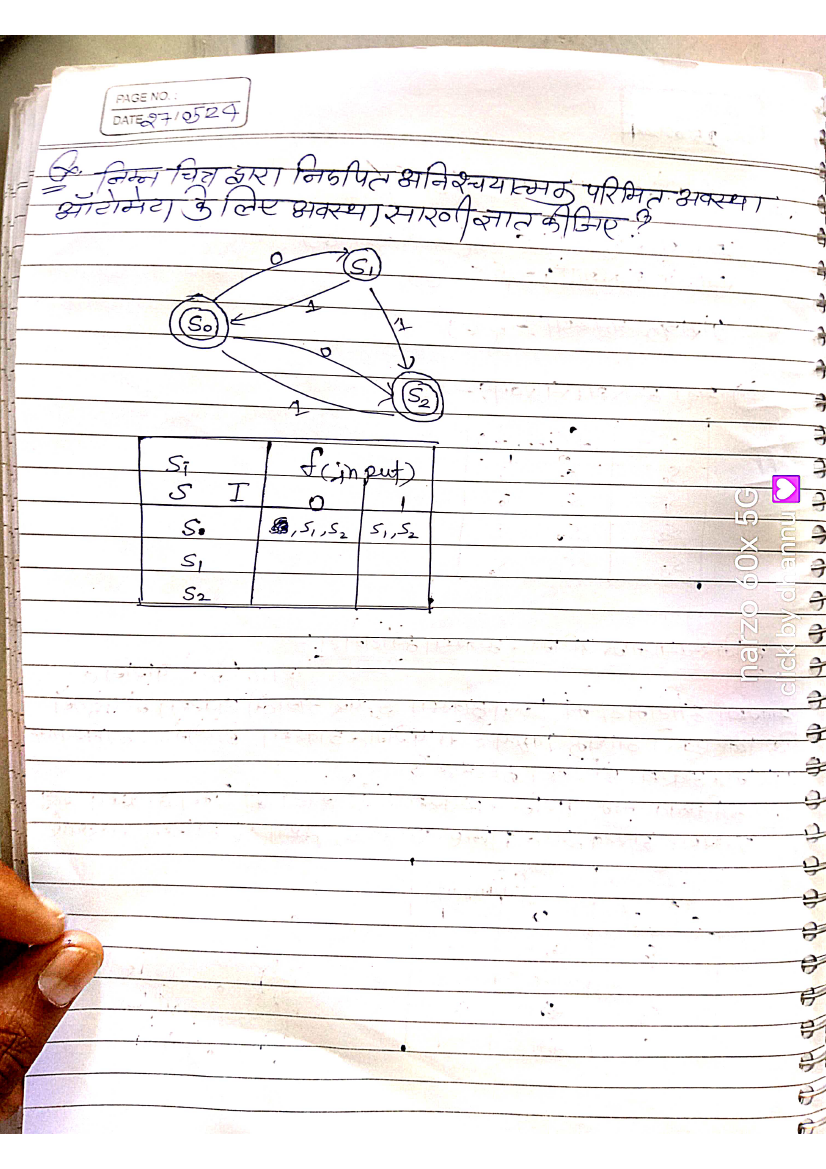 PAGE NO. :
DATE 270524
Q. निम्न चित्र द्वारा निरुपित अनिश्चयात्मक परिमित अवस्था
ऑटोमेटा के लिए अवस्था सारणी ज्ञात कीजिए ?
0
S1
1
S0
1
0
S2
1
Si
f(input)
S I
0 1
S0 , S1, S2 S1, S2
S1
S2
narzo 60x 5G